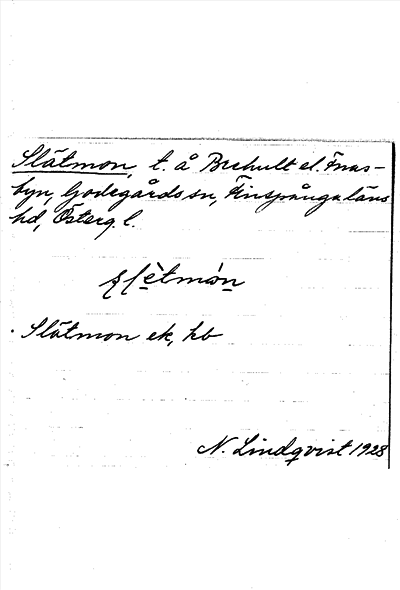 Slätmon, t. å Brehult el. Fnas-
byn, Godegårds sn, Finspånga läns
hd, Österg. l.
slètmón
Slätmon ek, hb
N. Lindqvist 1928